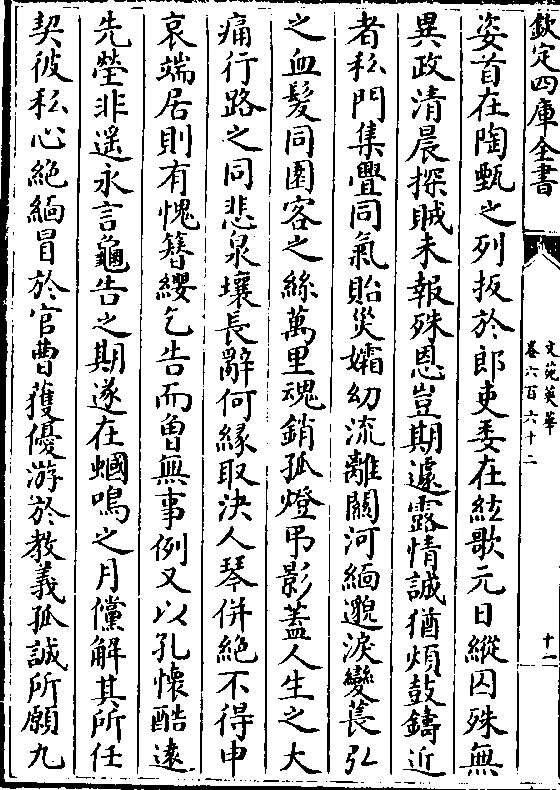 欽定四庫全書
文苑英華
卷六百六十二
十一
姿首在陶甄之列扳於郎吏委在絃歌元日縱囚殊無
異政清晨探賊未報殊恩豈期遽露情誠猶煩鼓鑄近
者私門集舋同氣貽災孀幼流離關河緬邈淚變萇弘
之血髮同園客之絲萬里魂銷孤燈弔影蓋人生之大
痛行路之同悲泉壤長辭何緣取決人琴併絕不得申
哀端居則有愧簪纓乞告而曾無事例又以孔懷酷遠
先塋非遥永言龜告之期遂在蟈鳴之月儻解其所任
契彼私心絕緬冒於官曹獲優游於教義孤誠所願九